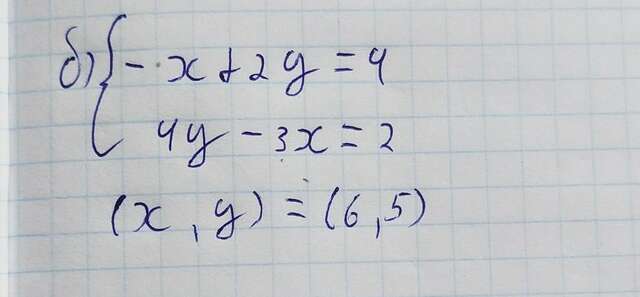 б) { - x + 2y = 4
4y - 3x = 2
(x, y) = (6, 5)